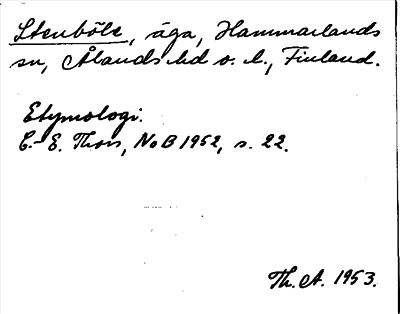 Stenböle, äga, Hammarlands
sn, Ålands hd o. l., Finland.
Etymologi:
C.-E. Thors, NoB 1952, s. 22.
Th. A. 1953.